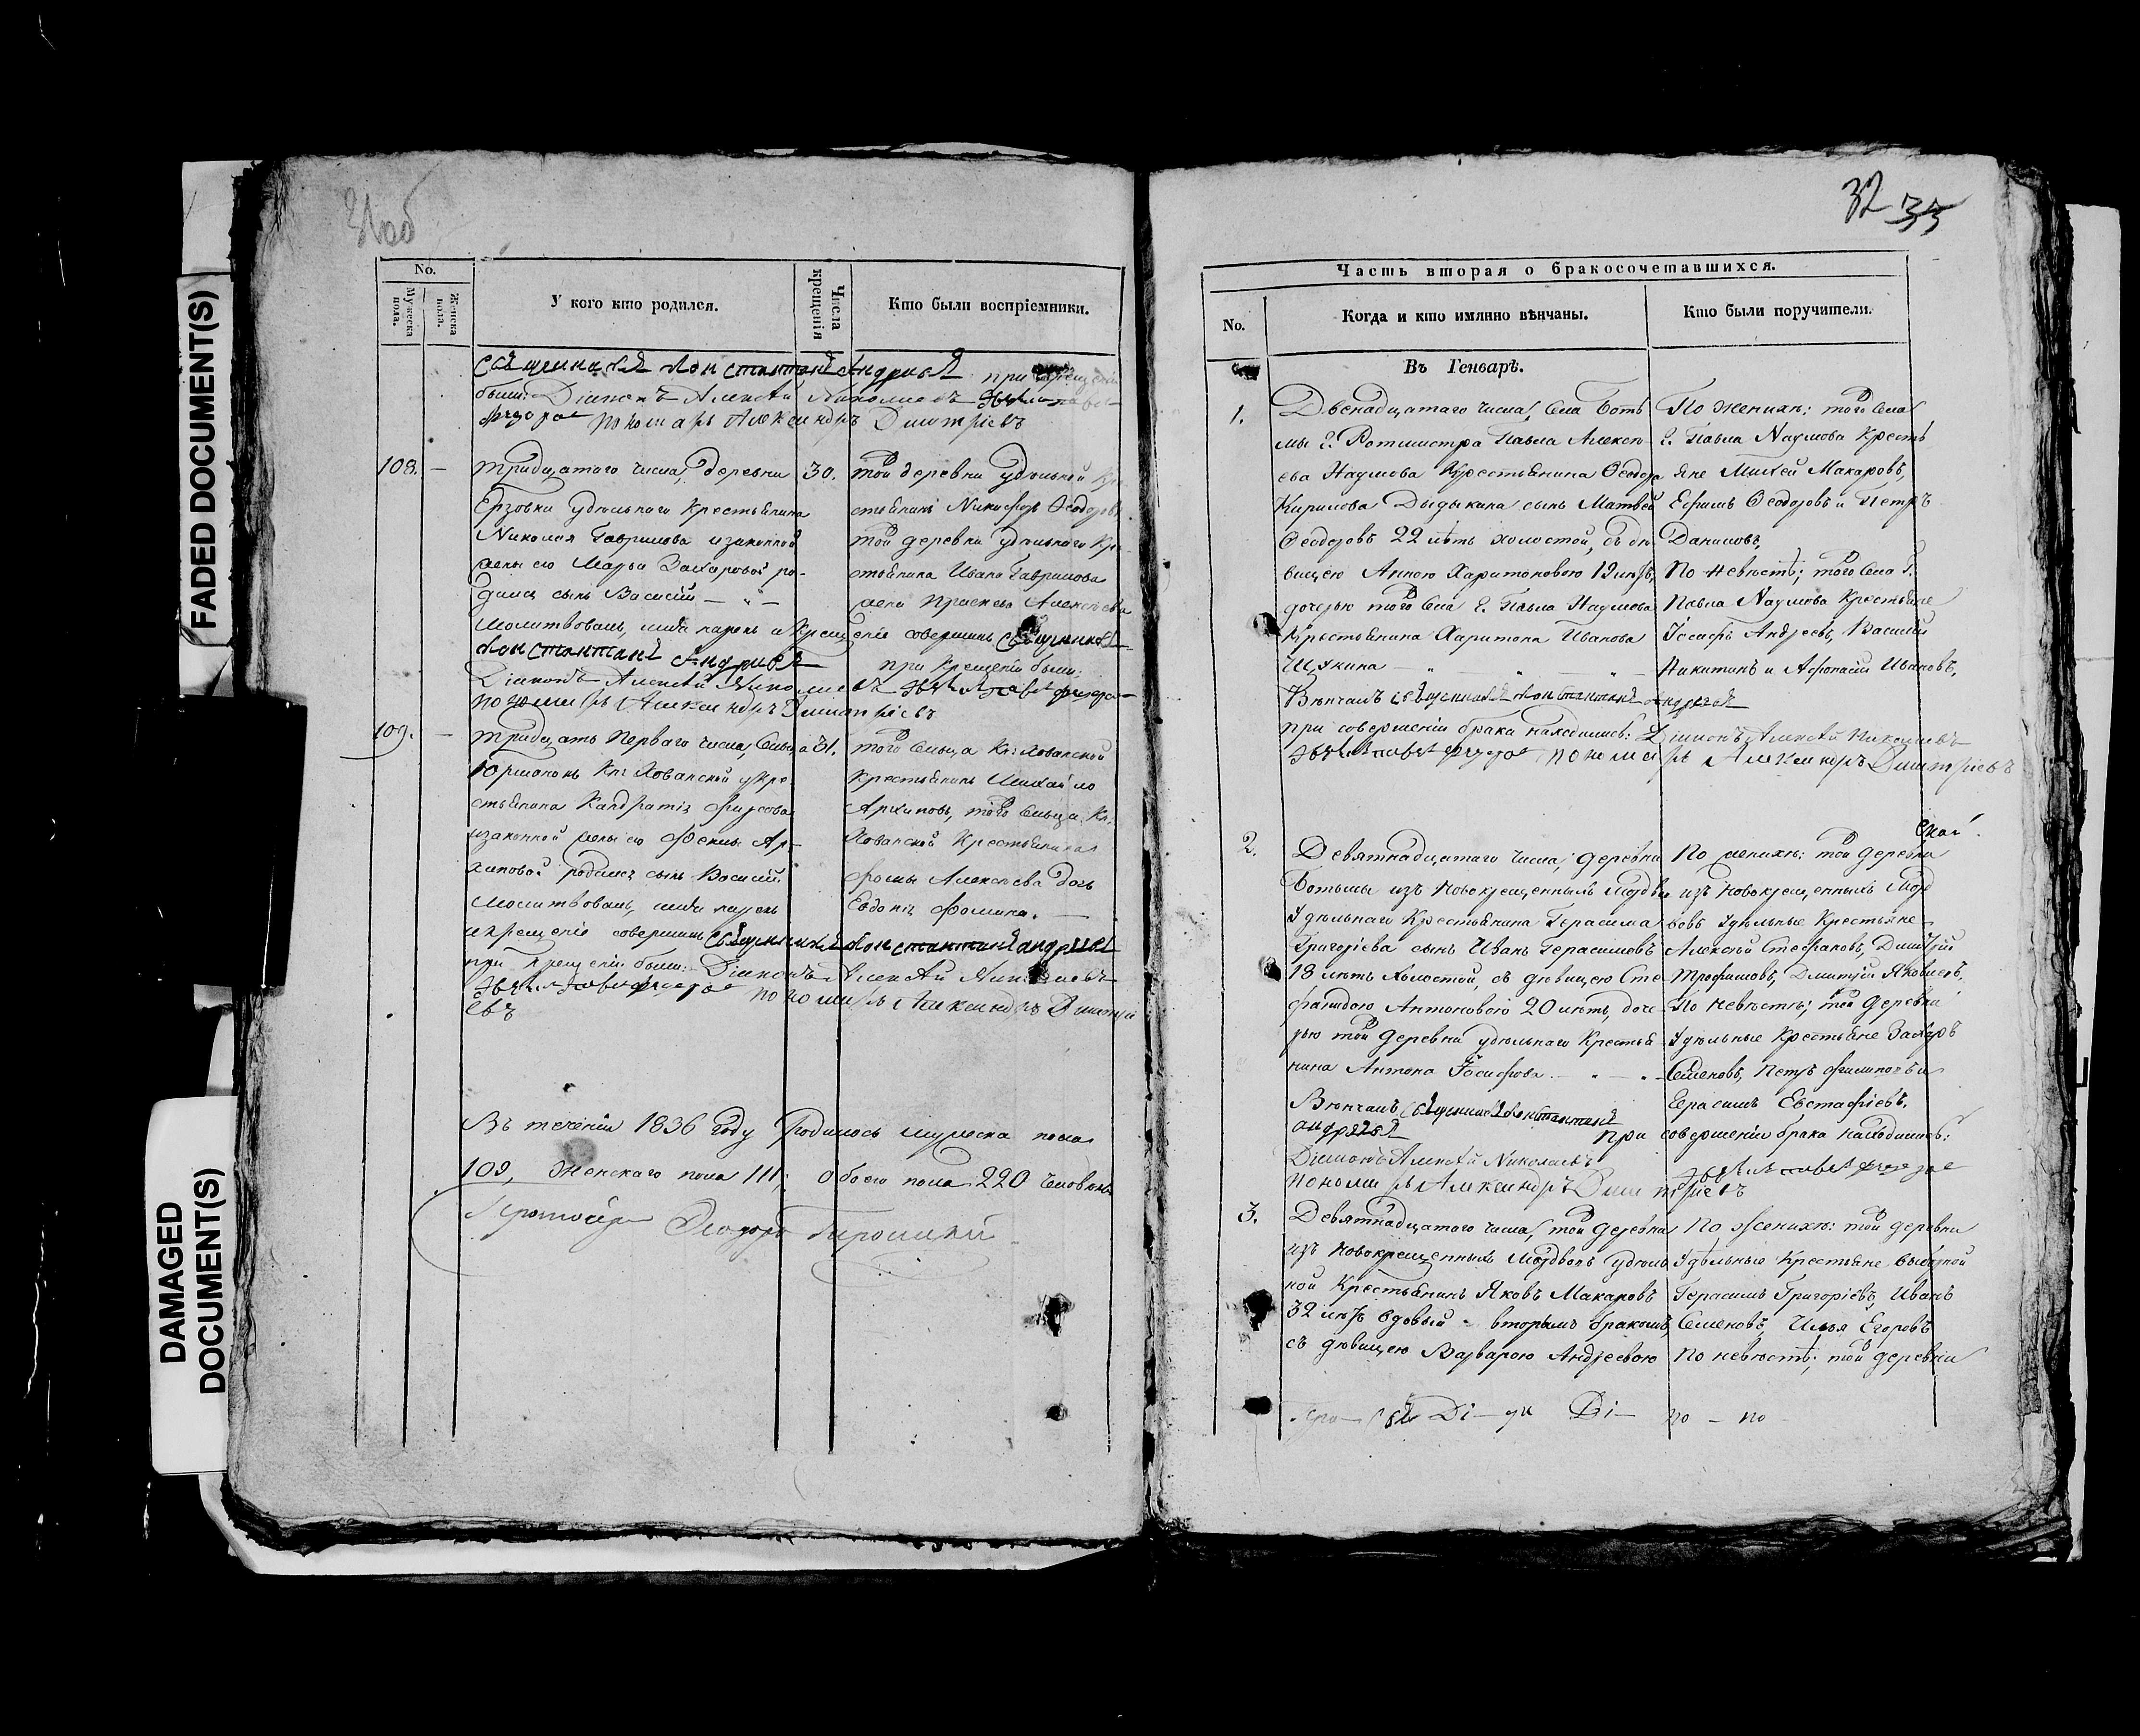 FADED DOCUMENT(S)
DAMAGED
DOCUMENT(S)
No.
Мужеска
пола.
Женска
пола.
У кого кто родился.
Числа
крещенія
Кто были воспріемники.
при
были: Діаконъ Алексѣй Николаевъ
пономарь Александръ Димитріевъ
108.
—
тридцатаго числа, деревни
Ерзовки удѣльнаго крестьянина
Николая Гаврилова и законной
жены его Марьи Захаровой ро-
дился сынъ Василій — „ —
Молитвовалъ, имя нарекъ и крещеніе совершилъ священникъ
Константинъ Андреевъ при крещеніи были:
Діаконъ Алексѣй Николаевъ
пономарь Александръ Димитріевъ
30.
той деревни удѣльной
стьянинъ Никифоръ Ѳеодоровъ
той деревни удѣльнаго кре-
стьянина Ивана Гаврилова
жена Алексѣева
109.
—
тридцать перваго числа, сельца
Кн: Хованской кре-
стьянина
и законной жены его Ар-
хиповой родился сынъ Василій.
Молитвовалъ, имя нарекъ
и крещеніе совершилъ священникъ Константинъ Андреевъ
при крещеніи были: Діаконъ Алексѣй Николаевъ
пономарь Александръ Димитрі
евъ
31.
того сельца Кн: Хованской
крестьянинъ Михайло
Архиповъ, того сельца Кн.
Хованской крестьянина
Фомы Алексѣева дочь
Евдокія Фомина. —
Въ теченіи 1836 году родилось мужеска пола
109, женскаго пола 111; обоего пола 220 человѣкъ
32 33
Часть вторая о бракосочетавшихся.
No.
Когда и кто имянно вѣнчаны.
Кто были поручители.
Въ Генварѣ.
1.
Двенадцатаго числа, села Боть
мы Г. Ротмистра Павла Алексѣ
ева Наумова крестьянина Ѳеодора
Кирилова Дыдыкина сынъ Матвей
Ѳеодоровъ 22 лѣтъ холостой, съ дѣ
вицею Анною Харитоновою 19 лѣтъ,
дочерью того села Г. Павла Наумова
крестьянина Харитона Иванова
Щукина — „
Вѣнчалъ священникъ Константинъ Андреевъ
при совершеніи брака находились: Діаконъ Алексѣй Николаевъ
пономарь Александръ Димитріевъ
По женихѣ: того села
Г. Павла Наумова кресть
яне Михей Макаровъ,
Ефимъ Ѳеодоровъ и Петръ
Даниловъ,
По невѣстѣ; того села Г.
Павла Наумова крестьяне
Іосифъ Андреевъ, Василій
Никитинъ и Афонасій Ивановъ,
2.
Девятнадцатаго числа; деревни
Ботьмы изъ новокрещенныхъ мордвы
удѣльнаго крестьянина Герасима
Григорьева сынъ Иванъ Герасимовъ
18 лѣтъ холостой, съ дѣвицею Сте
фанидою Антоновою 20 лѣтъ, доче
рью той деревни удѣльнаго крестья
нина Антона Іосифова — „ — „
Вѣнчалъ священникъ Константинъ
Андреевъ при совершеніи брака находились:
Діаконъ Алексѣй Николаевъ
пономарь Александръ Димитріевъ
По женихѣ: той деревни
изъ новокрещенныхъ морд
вовъ удѣльные крестьяне
Алексѣй Стефановъ, Димитрій
Трофимовъ, Дмитрій Яковлевъ,
По невѣстѣ; той деревни
удѣльные крестьяне Захаръ
Семеновъ, Петръ Филиповъ и
Герасимъ Евстафіевъ.
3.
Девятнадцатаго числа, той деревни
изъ новокрещенныхъ мордвовъ удѣль
ной крестьянинъ Яковъ Макаровъ
32 лѣтъ вдовый - вторымъ бракомъ,
съ дѣвицею Варварою Андреевою
По женихѣ: той деревни
удѣльные крестьяне
Герасимъ Григорьевъ, Иванъ
Семеновъ, Илья Егоровъ
По невѣстѣ; той деревни